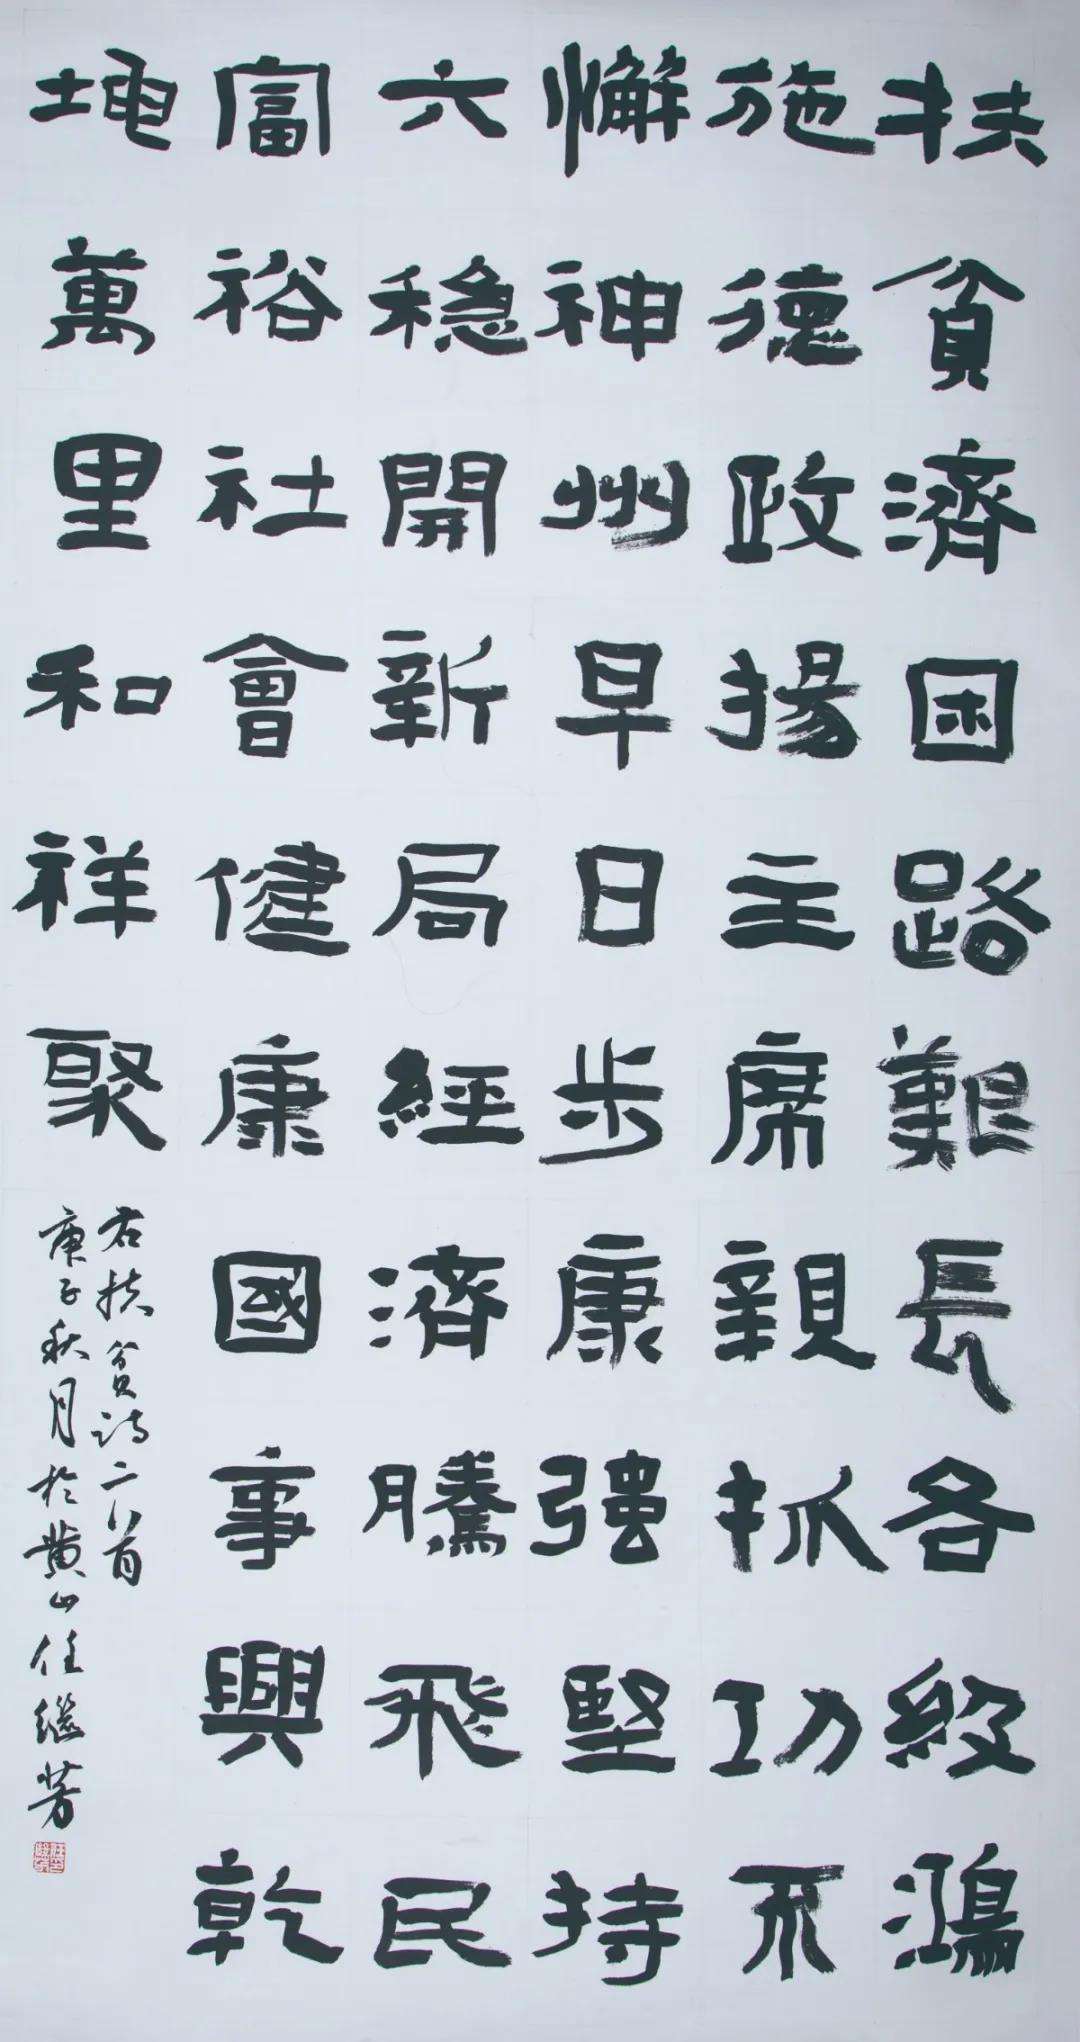 扶貧濟困路艱長各级鴻
施德政揚主席親抓功不
懈神州早日步康强堅持
六稳開新局經濟騰飛民
富裕社會健康國事興乾
地萬里和祥聚
右扶贫诗二首
庚子秋月於黄山任继芳